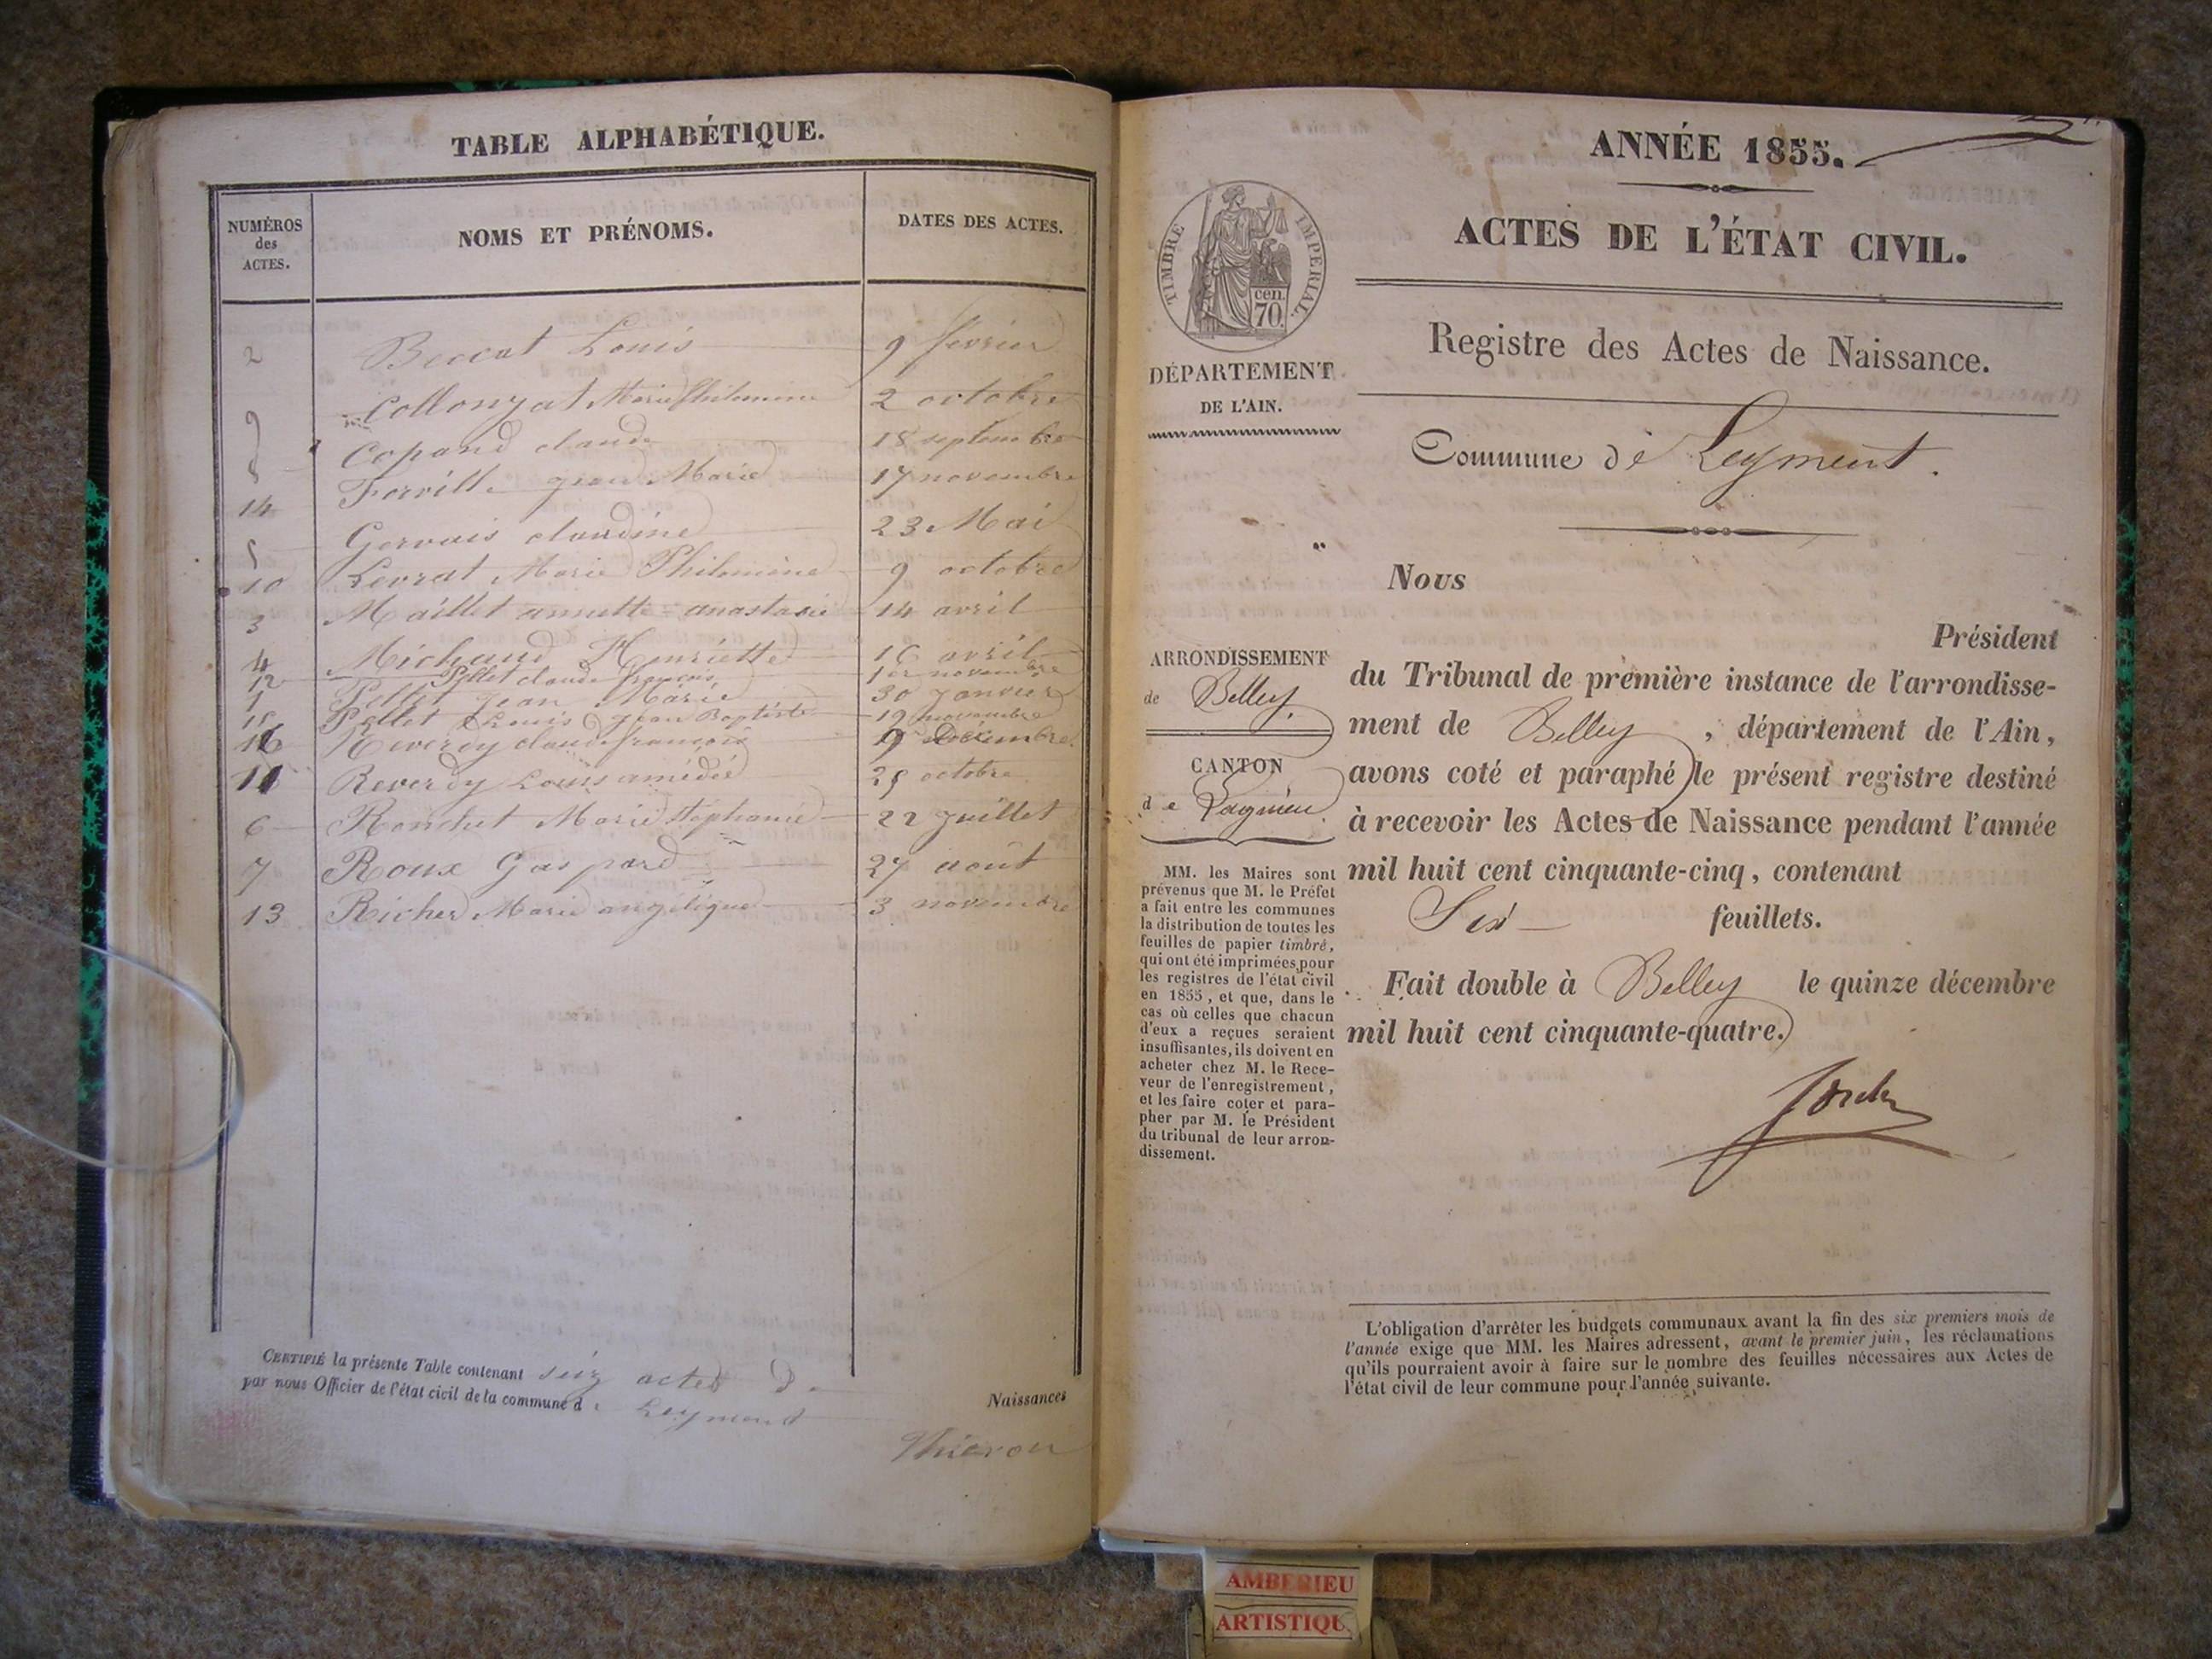 TABLE ALPHABÉTIQUE.
NUMÉROS des ACTES.
NOMS ET PRÉNOMS.
DATES DES ACTES.
2 Beccat Louis 9 février
9 Collonzat Marie Philomine 2 octobre
8 Copand claude 18 septembre
14 jean Marie 17 novembre
5 Gervais claudine 23 Mai
10 Levrat Marie Philomine 9 octobre
3 Maillet annette = anastasie 14 avril
4 Michaud Henriette 16 avril
12 Pellet claude françois 1er novembre
1 Pellet jean Marie 30 janvier
15 Pellet Louis jean Baptiste 19 novembre
16 Reverdy claude françois 9 Décembre
11 Reverdy Louis amédée 25 octobre
6 Ronchet Marie Stéphanie 22 juillet
7 Roux Gaspard 27 août
13 Richer Marie angélique 3 novembre
CERTIFIÉ la présente Table contenant seiz actes d
Naissances
par nous Officier de l'état civil de la commune d Leyment
Thiévon
ANNÉE 1855.
ACTES DE L'ÉTAT CIVIL.
Registre des Actes de Naissance.
Commune de Leyment.
TIMBRE IMPÉRIAL.
cen.
70.
DÉPARTEMENT
DE L'AIN.
ARRONDISSEMENT
de Belley.
CANTON
de Lagnieu.
MM. les Maires sont
prévenus que M. le Préfet
a fait entre les communes
la distribution de toutes les
feuilles de papier timbré,
qui ont été imprimées pour
les registres de l'état civil
en 1855, et que, dans le
cas où celles que chacun
d'eux a reçues seraient
insuffisantes, ils doivent en
acheter chez M. le Rece-
veur de l'enregistrement,
et les faire coter et para-
pher par M. le Président
du tribunal de leur arron-
dissement.
Nous
Président
du Tribunal de première instance de l'arrondisse-
ment de Belley, département de l'Ain,
avons coté et paraphé le présent registre destiné
à recevoir les Actes de Naissance pendant l'année
mil huit cent cinquante-cinq, contenant
Six feuillets.
Fait double à Belley le quinze décembre
mil huit cent cinquante-quatre.
L'obligation d'arrêter les budgets communaux avant la fin des six premiers mois de
l'année exige que MM. les Maires adressent, avant le premier juin, les réclamations
qu'ils pourraient avoir à faire sur le nombre des feuilles nécessaires aux Actes de
l'état civil de leur commune pour l'année suivante.
AMBERIEU
ARTISTIQU